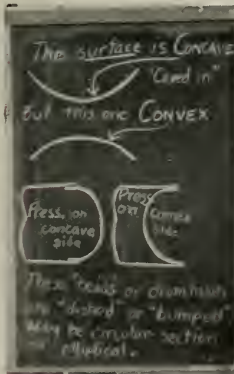 This surface is CONCAVE
"Caved in"
But this one CONVEX
Press. on
concave
side
Press
on convex
side
These "heads" or drum heads
are "dished" or "bumped"
May be circular section
or elliptical.